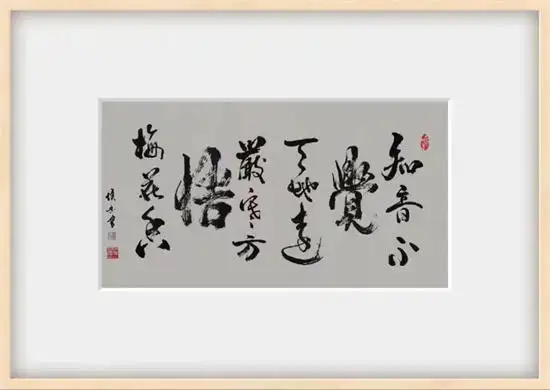 知音不
覺
天地遠
嚴寒方
悟
梅花香